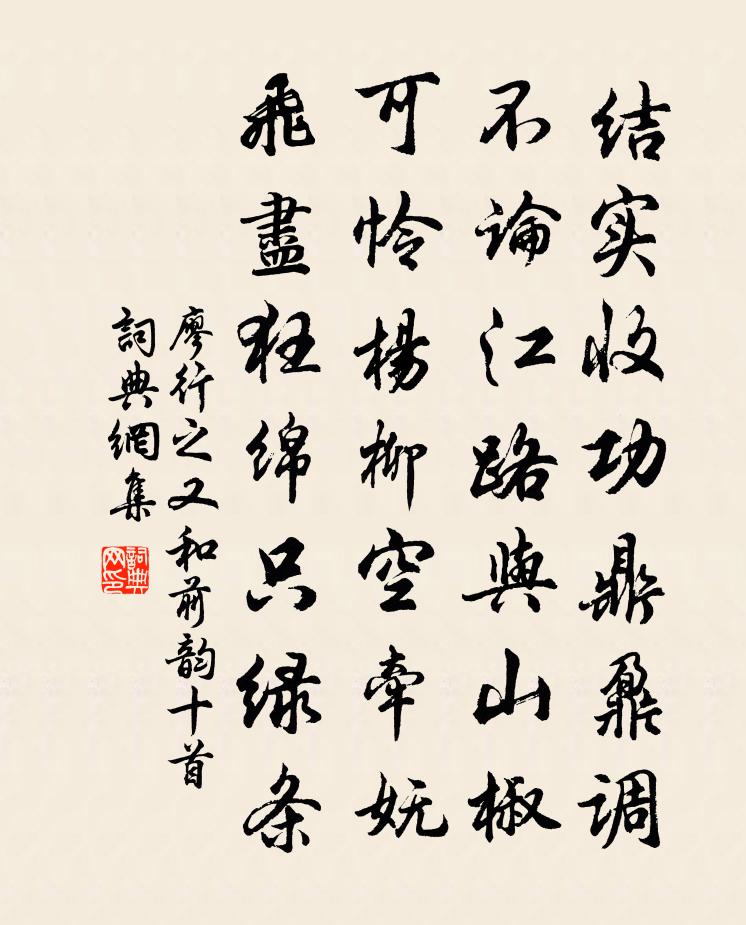 结实收功鼎鼐调
不論江路與山椒
可怜楊柳空牵妩
飛盡狂绵只绿条
廖行之又和前韵十首
詞典網集
詞典网印